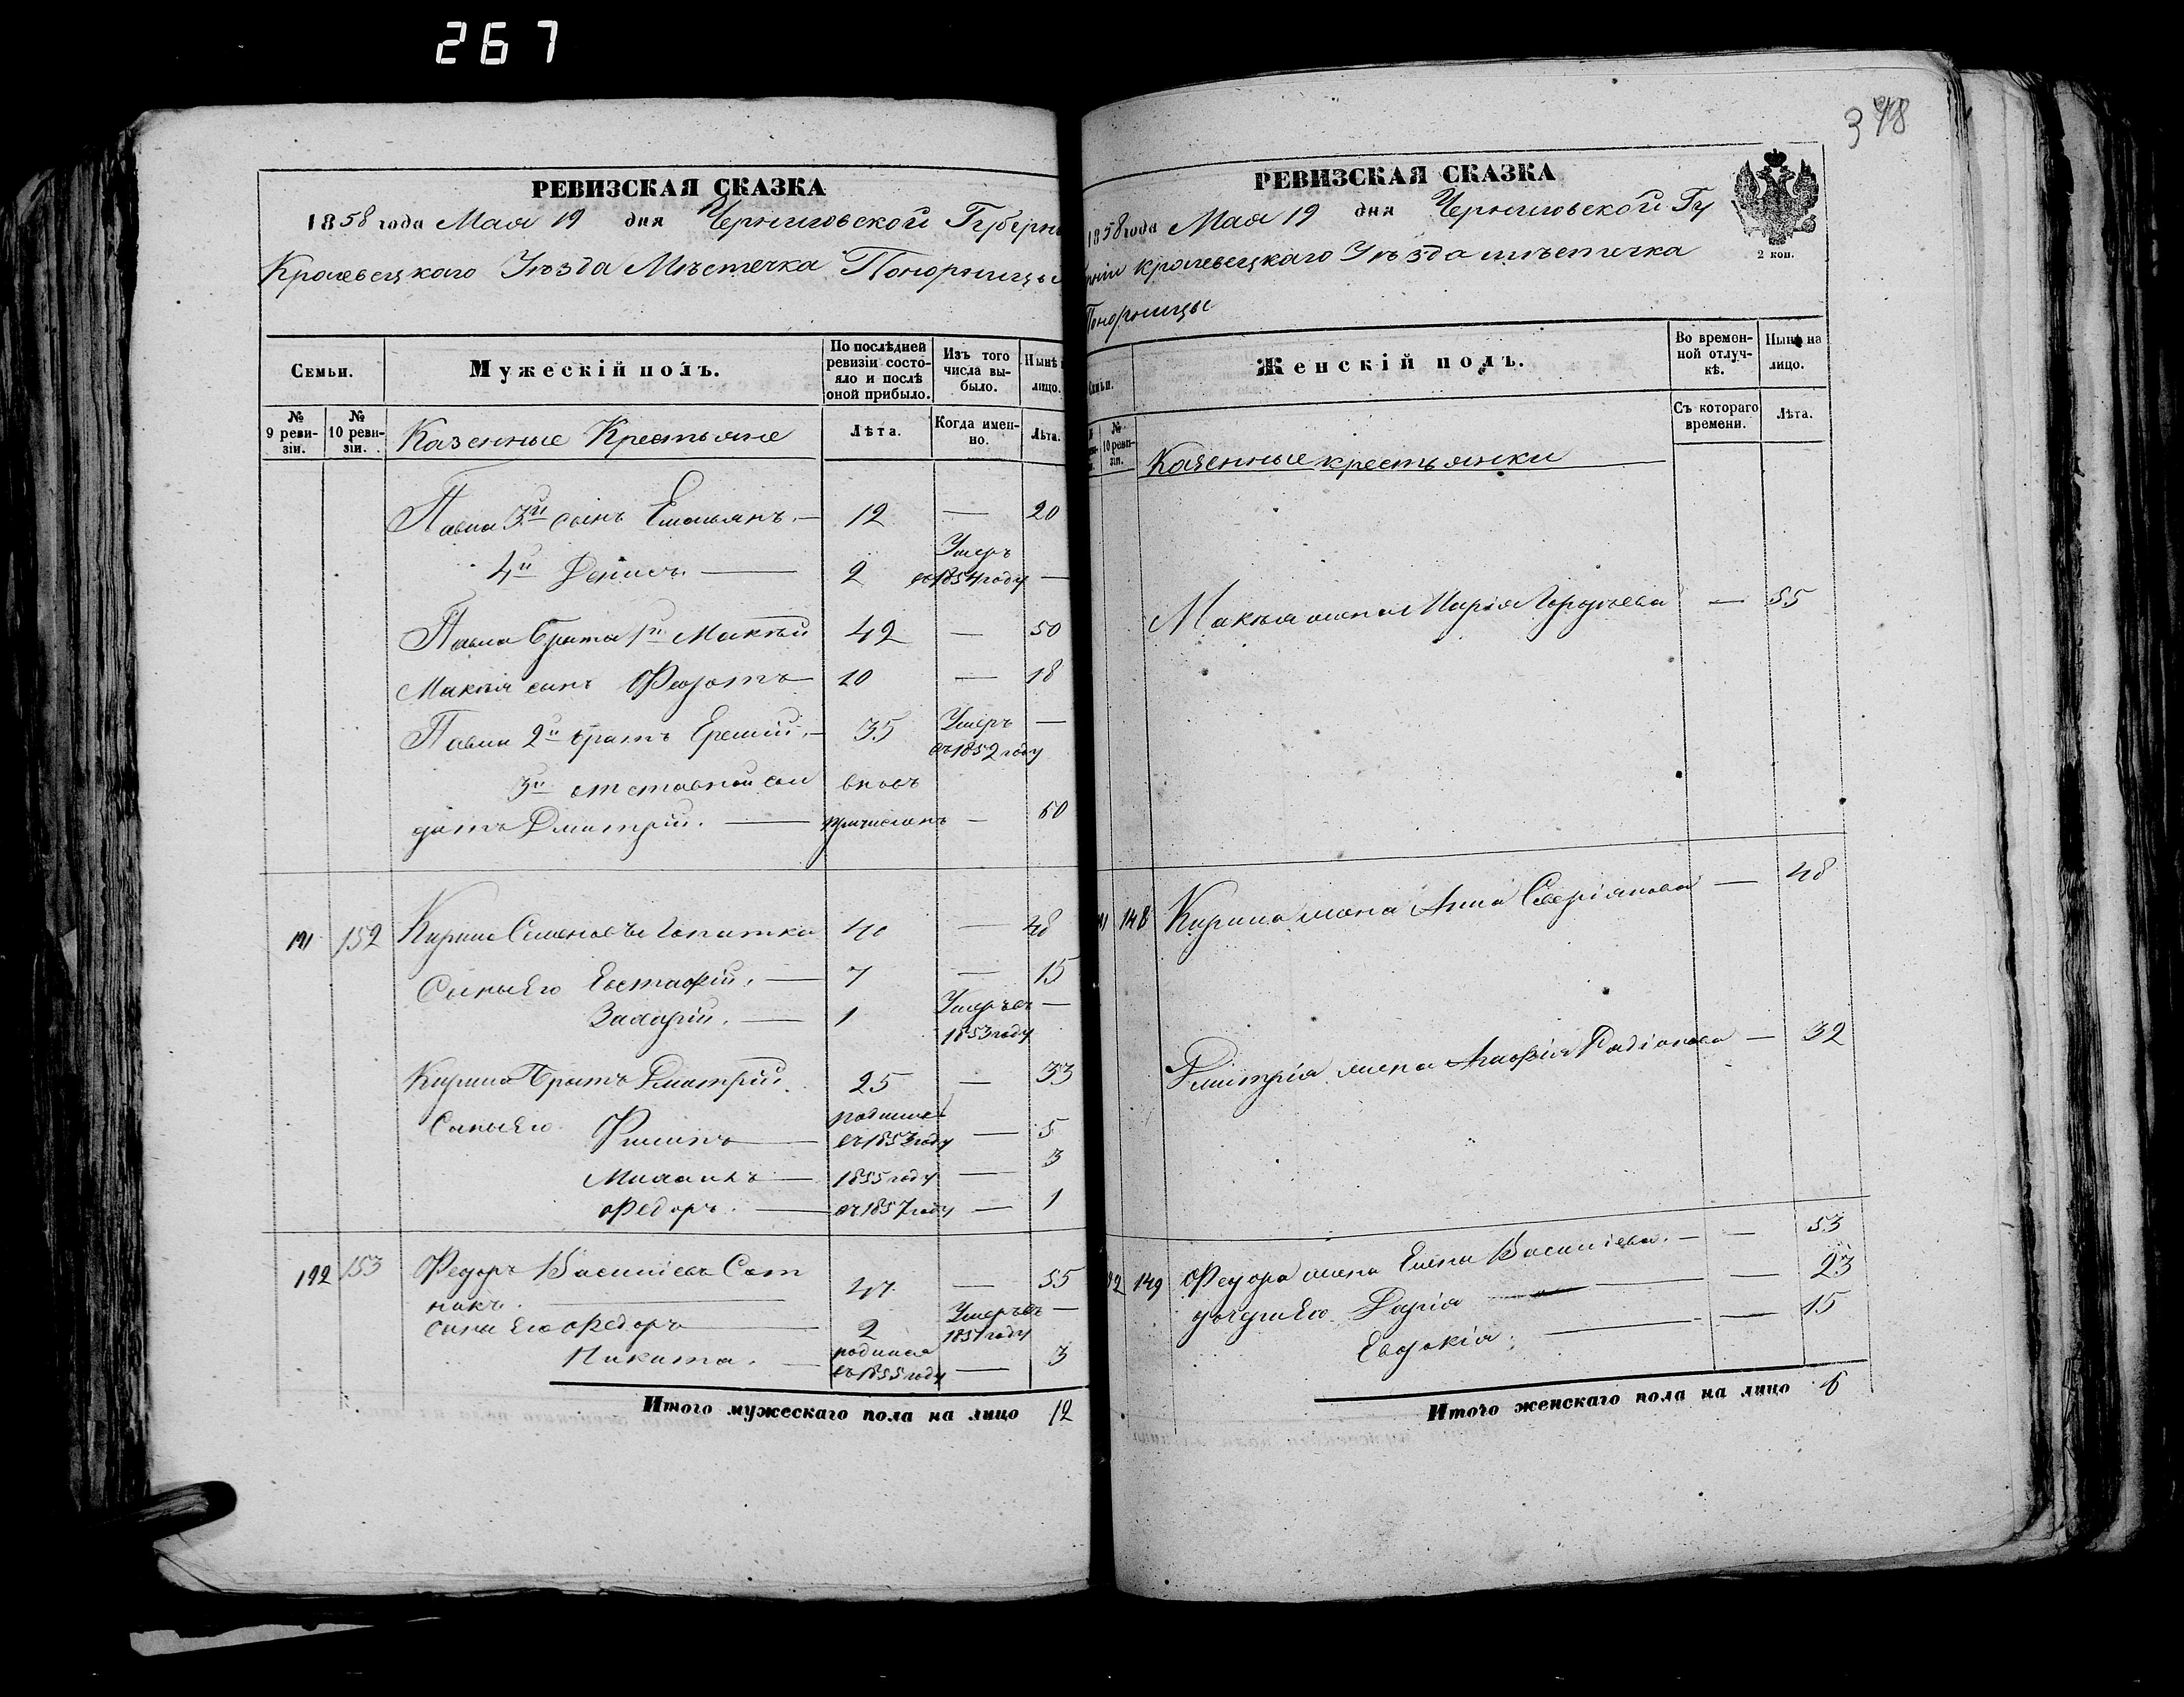 267
РЕВИЗСКАЯ СКАЗКА
1858 года Мая 19 дня Черниговской Губерн
Кролевецкаго Уѣзда Мѣстечка Понорницы
Семьи.
Мужескій полъ.
По послѣдней ревизіи состояло и послѣ оной прибыло.
Изъ того числа выбыло.
Нынѣ
лицо.
№ 9 ревизіи.
№ 10 ревизіи.
Казенные Крестьяне
Лѣта.
Когда именно.
Лѣта.
Павла 3й сынъ Емельянъ. — 12 — 20
4й Денисъ — 2 Умеръ въ 1854 году —
Павла брата 1й Макѣй 42 — 50
Макѣя сынъ Федотъ 10 — 18
Павла 2й братъ Еремій. — 35 Умеръ въ 1852 году —
3й отставной сол вновь
датъ Дмитрій. — причисленъ — 60
191 152 Кирило Семеновъ Лопатка 40 — 48
Сыны Его Евстафій. — 7 — 15
Захарій. — 1 Умеръ въ 1853 году —
Кирила братъ Дмитрій. 25 — 33
Сыны Его Филипъ — родился въ 1853 году — 5
Михаилъ — 1855 году — 3
Федоръ. — въ 1857 году — 1
192 153 Федоръ Васильевъ Сот
никъ. — 47 — 55
сыны Его Федоръ — 2 Умеръ въ 1851 году —
Никита. — родился въ 1855 году — 3
Итого мужескаго пола на лицо 12
378
РЕВИЗСКАЯ СКАЗКА
1858 года Мая 19 дня Черниговской Гу
рніи Кролевецкаго Уѣзда мѣстечка
Понорницы
2 коп.
Семьи.
Женскій полъ.
Во временной отлучкѣ.
Нынѣ на лицо.
№ 10 ревизіи.
Казенные крестьянки
Съ котораго времени.
Лѣта.
Макѣя жена Марія Гордѣева — 55
148 Кирила жена Анна Северіянова — 48
Дмитрія жена Агафія Радіонова — 32
149 Федора жена Елена Василіева. — 53
дочери Его Дарія — 23
Евдокія. — 15
Итого женскаго пола на лицо 6